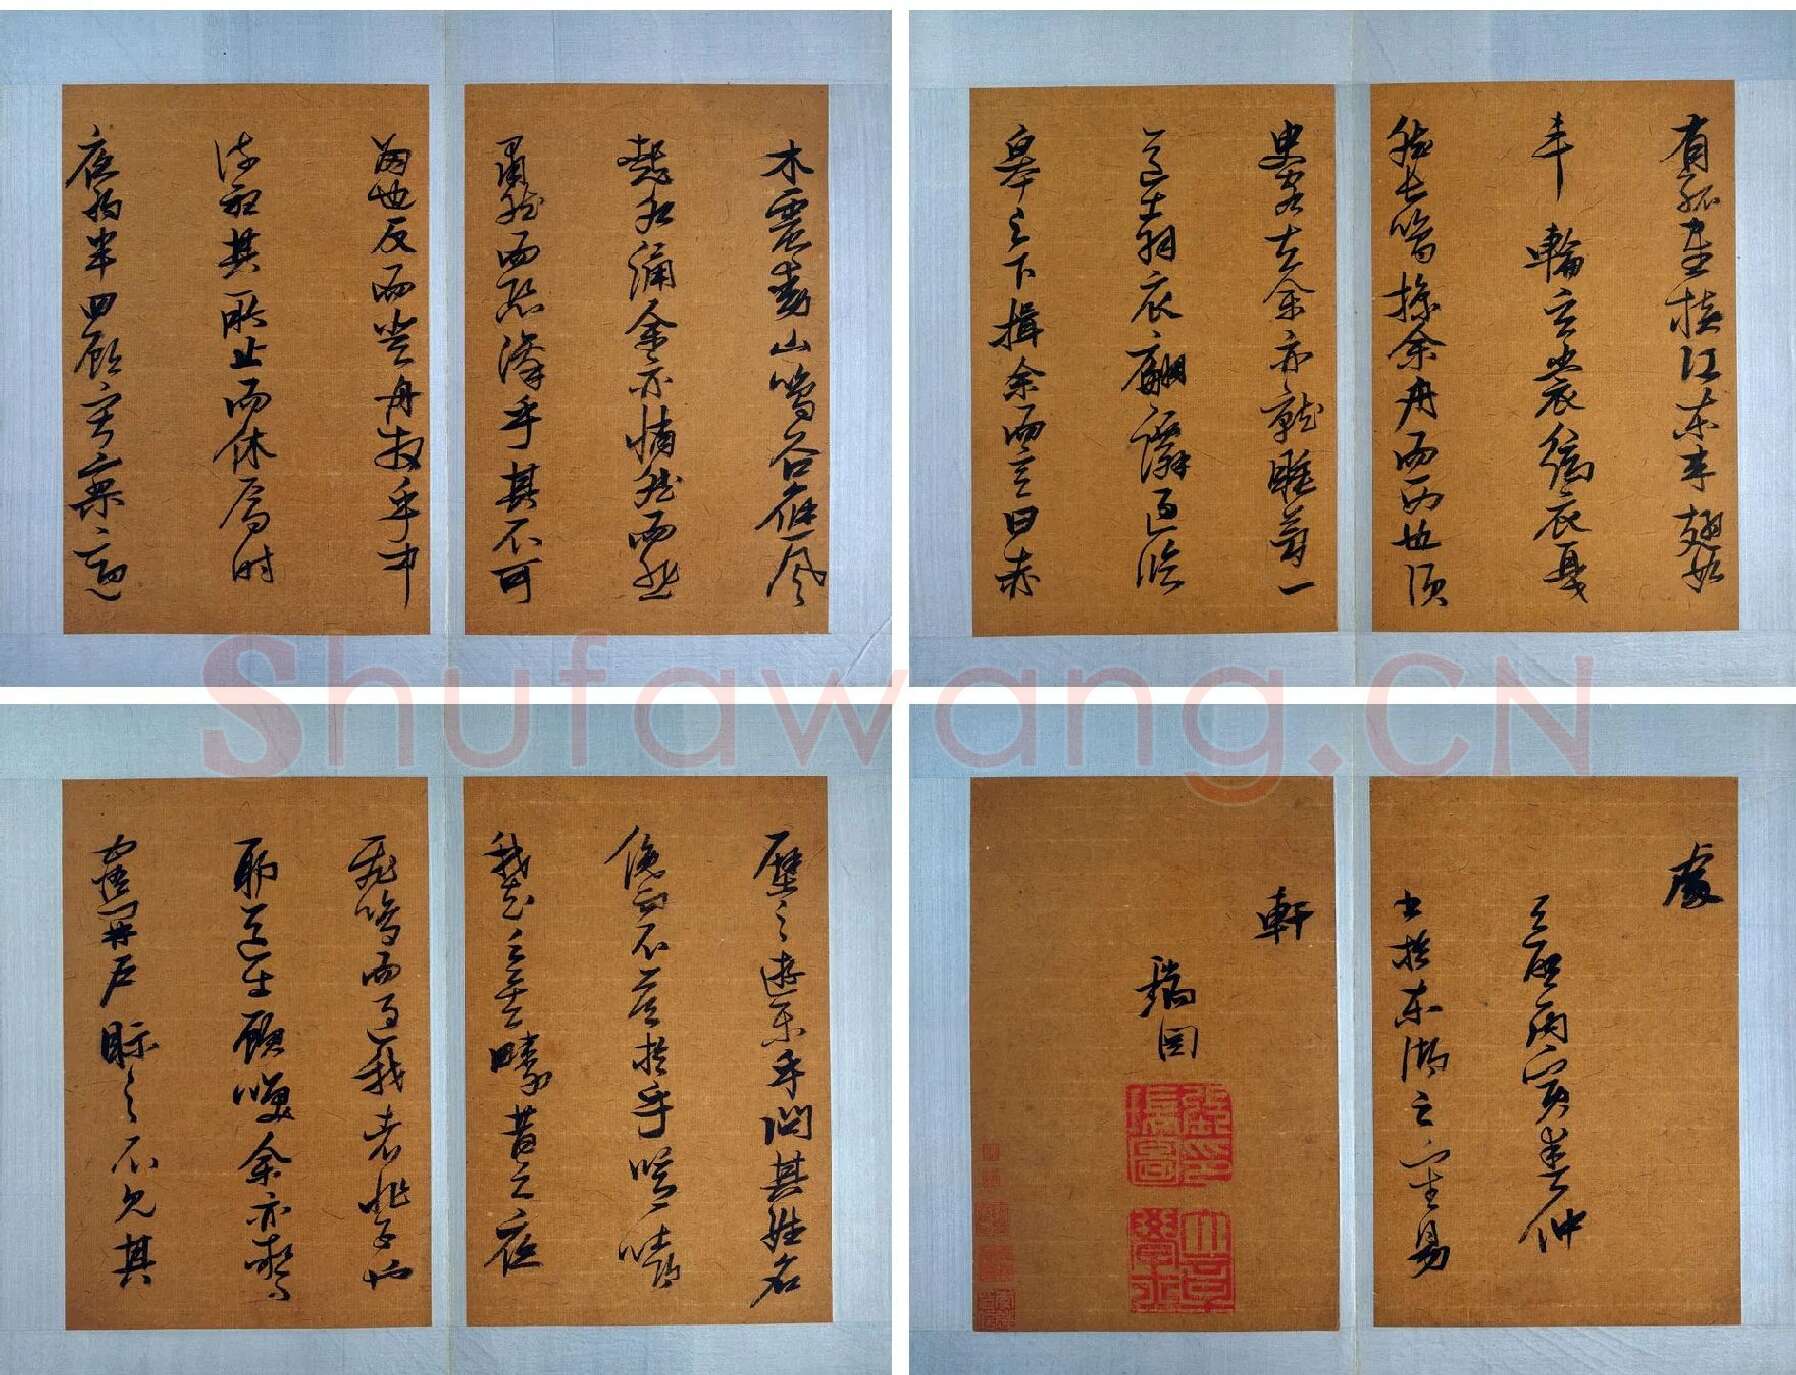 木震動山鳴谷應風
起水涌余亦悄然而悲
肅然而恐凜乎其不可
留也反而登舟放乎中
流聽其所止而休焉時
夜將半四顧寂寥適
有孤鶴橫江東來翅如
車輪玄裳縞衣戛
然長鳴掠余舟而西也須
臾客去余亦就睡夢一
道士羽衣翩躚過臨
皋之下揖余而言曰赤
壁之遊樂乎問其姓名
俛而不答於乎噫嘻
我知之矣疇昔之夜
飛鳴而過我者非子也
耶道士顧笑余亦驚
寤開戶眎之不見其
處
天啟丙寅春仲
書於東湖之易
軒
瑞図
Shufawang.CN